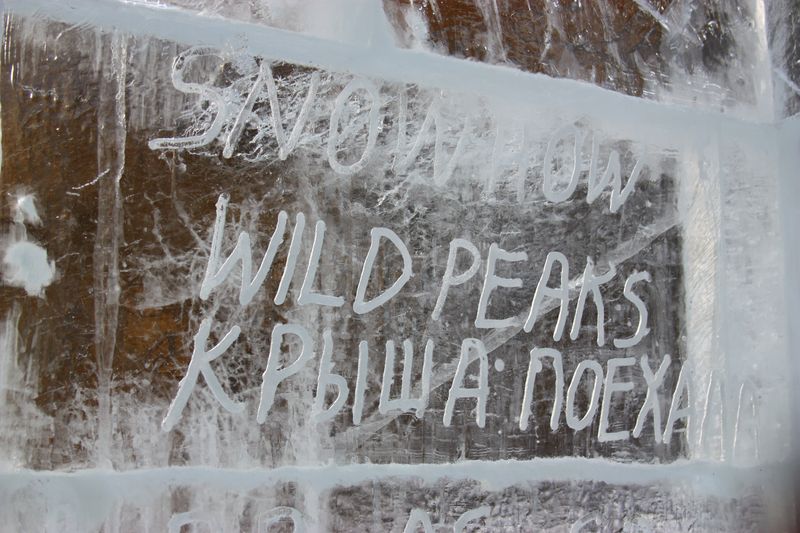 SNOWHOW
WILD PEAKS
КРЫША·ПОЕХАЛИ